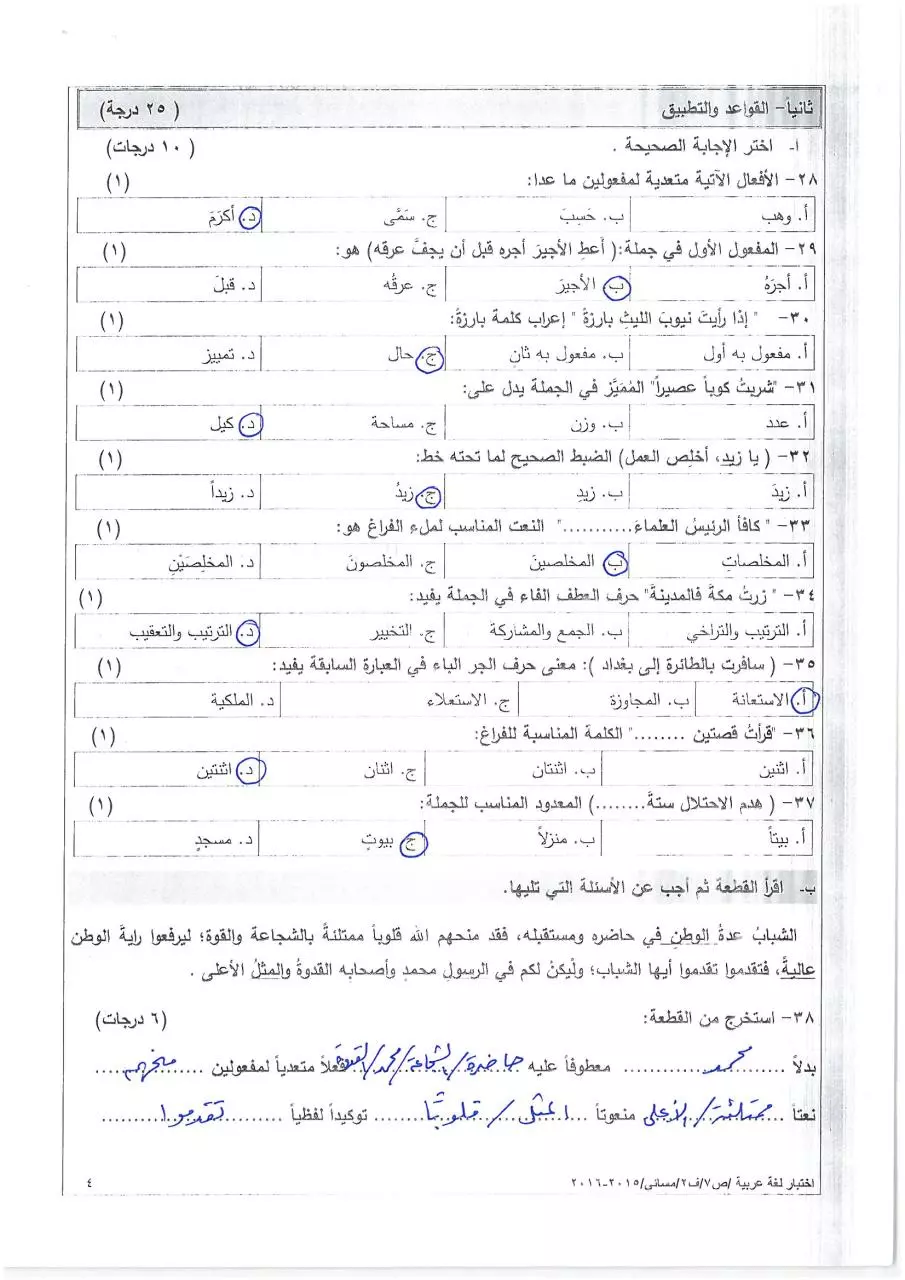 ثانياً- القواعد والتطبيق (٢٥ درجة)
أ- اختر الإجابة الصحيحة . (١٠ درجات)
٢٨- الأفعال الآتية متعدية لمفعولين ما عدا: (١)
أ. وهب ب. حَسِبَ ج. سَمَّى د. أكرَمَ
٢٩- المفعول الأول في جملة:( أعطِ الأجيرَ أجره قبل أن يجفَّ عرقه) هو: (١)
أ. أجرَهُ ب. الأجيرَ ج. عرقُه د. قبلَ
٣٠- " إذا رأيتَ نيوبَ الليثِ بارزةً " إعراب كلمة بارزةً: (١)
أ. مفعول به أول ب. مفعول به ثانٍ ج. حال د. تمييز
٣١- "شربتُ كوباً عصيراً" المُمَيَّز في الجملة يدل على: (١)
أ. عدد ب. وزن ج. مساحة د. كيل
٣٢- ( يا زيد، أخلِص العمل) الضبط الصحيح لما تحته خط: (١)
أ. زيدَ ب. زيدِ ج. زيدُ د. زيداً
٣٣- " كافأ الرئيسُ العلماءَ..........." النعت المناسب لملء الفراغ هو: (١)
أ. المخلصاتِ ب. المخلصينَ ج. المخلصونَ د. المخلِصَيْنِ
٣٤- " زرتُ مكةَ فالمدينةَ" حرف العطف الفاء في الجملة يفيد: (١)
أ. الترتيب والتراخي ب. الجمع والمشاركة ج. التخيير د. الترتيب والتعقيب
٣٥- ( سافرت بالطائرة إلى بغداد ): معنى حرف الجر الباء في العبارة السابقة يفيد: (١)
أ. الاستعانة ب. المجاوزة ج. الاستعلاء د. الملكية
٣٦- "قرأتُ قصتين ........" الكلمة المناسبة للفراغ: (١)
أ. اثنين ب. اثنتان ج. اثنان د. اثنتين
٣٧- ( هدم الاحتلال ستةَ........) المعدود المناسب للجملة: (١)
أ. بيتاً ب. منزلاً ج. بيوتٍ د. مسجدٍ
ب- اقرأ القطعة ثم أجب عن الأسئلة التي تليها.
الشبابُ عدةُ الوطنِ في حاضره ومستقبله، فقد منحهم الله قلوباً ممتلئةً بالشجاعة والقوة؛ ليرفعوا رايةَ الوطن
عاليةً، فتقدموا تقدموا أيها الشباب؛ وليكنْ لكم في الرسولِ محمدٍ وأصحابه القدوةُ والمثلُ الأعلى .
٣٨- استخرج من القطعة: (٦ درجات)
بدلاً محمد معطوفاً عليه حاضره/الشجاعة/محمد/القدوة فعلاً متعدياً لمفعولين منحهم
نعتاً ممتلئة/الأعلى منعوتاً المثل/قلوبًا توكيداً لفظياً تقدموا
اختبار لغة عربية /ص٧/ف٢/مسائي/٢٠١٥-٢٠١٦ ٤